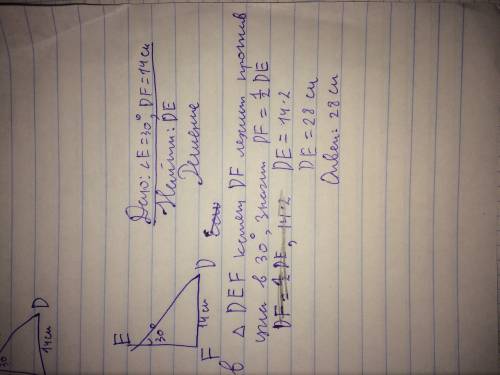 Дано: ∠E=30°, DF=14см
Найти: DE
Решение
E
30°
14см
F
D
В △ DEF катет DF лежит против
угла в 30°, значит DF = ½ DE
DF = ½ DE, 14·2
DE = 14·2
DE = 28 см
Ответ: 28 см
D
30
14см